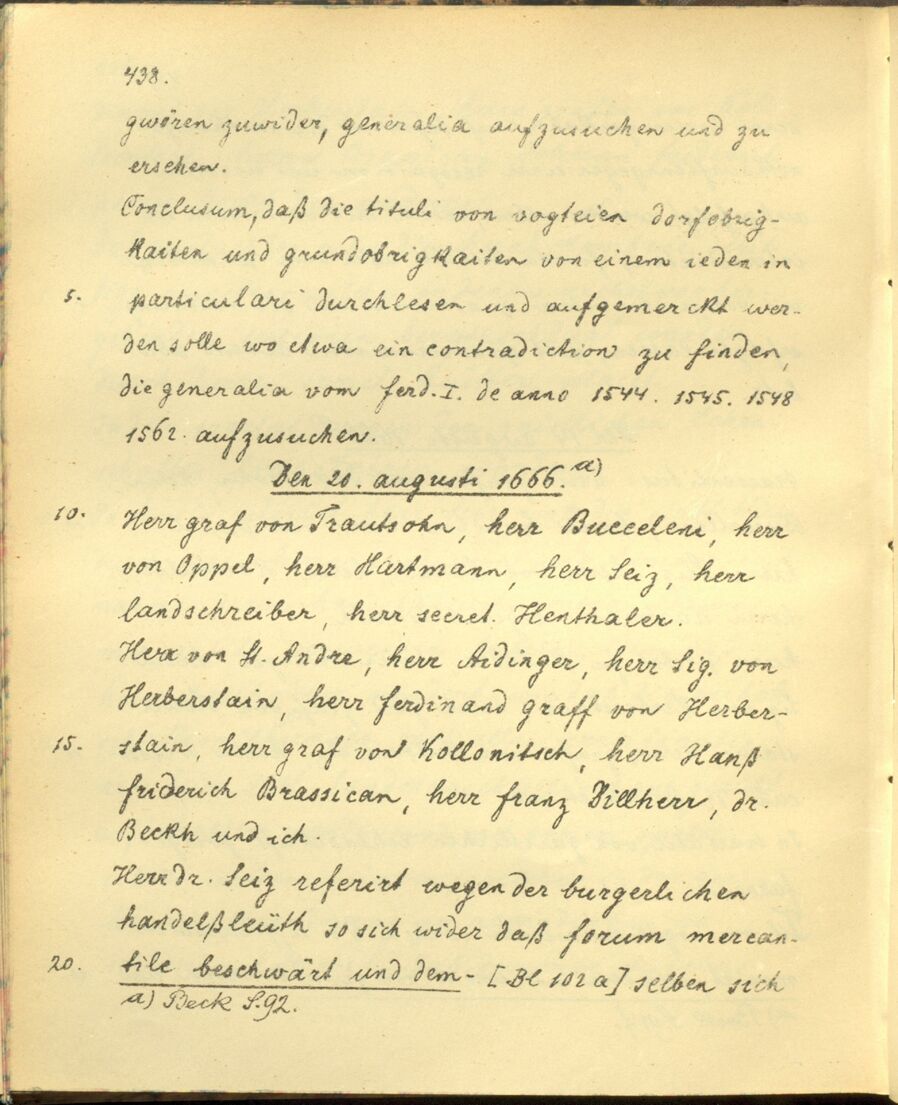 438.
gwören zuwider, generalia aufzusuchen und zu
ersehen.
Conclusum, daß die tituli von vogteien dorfobrig-
kaiten und grundobrigkaiten von einem ieden in
5. particulari durchlesen und aufgemerckt wer-
den solle wo etwa ein contradiction zu finden,
die generalia vom ferd. I. de anno 1544. 1545. 1548
1562. aufzusuchen.
Den 20. augusti 1666. a)
10. Herr graf von Trautsohn, herr Bucceleni, herr
von Oppel, herr Hartmann, herr Seiz, herr
landschreiber, herr secret. Henthaler.
Herr von St. Andre, herr Aidinger, herr Sig. von
Herberstain, herr ferdinand graff von Herber-
15. stain, herr graf von Kollonitsch, herr Hanß
friderich Brassican, herr franz Dillherr, dr.
Beckh und ich.
Herr dr. Seiz referirt wegen der burgerlichen
handelßleüth so sich wider daß forum mercan-
20. tile beschwärt und dem- [Bl 102 a] selben sich
a) Beck S. 92.